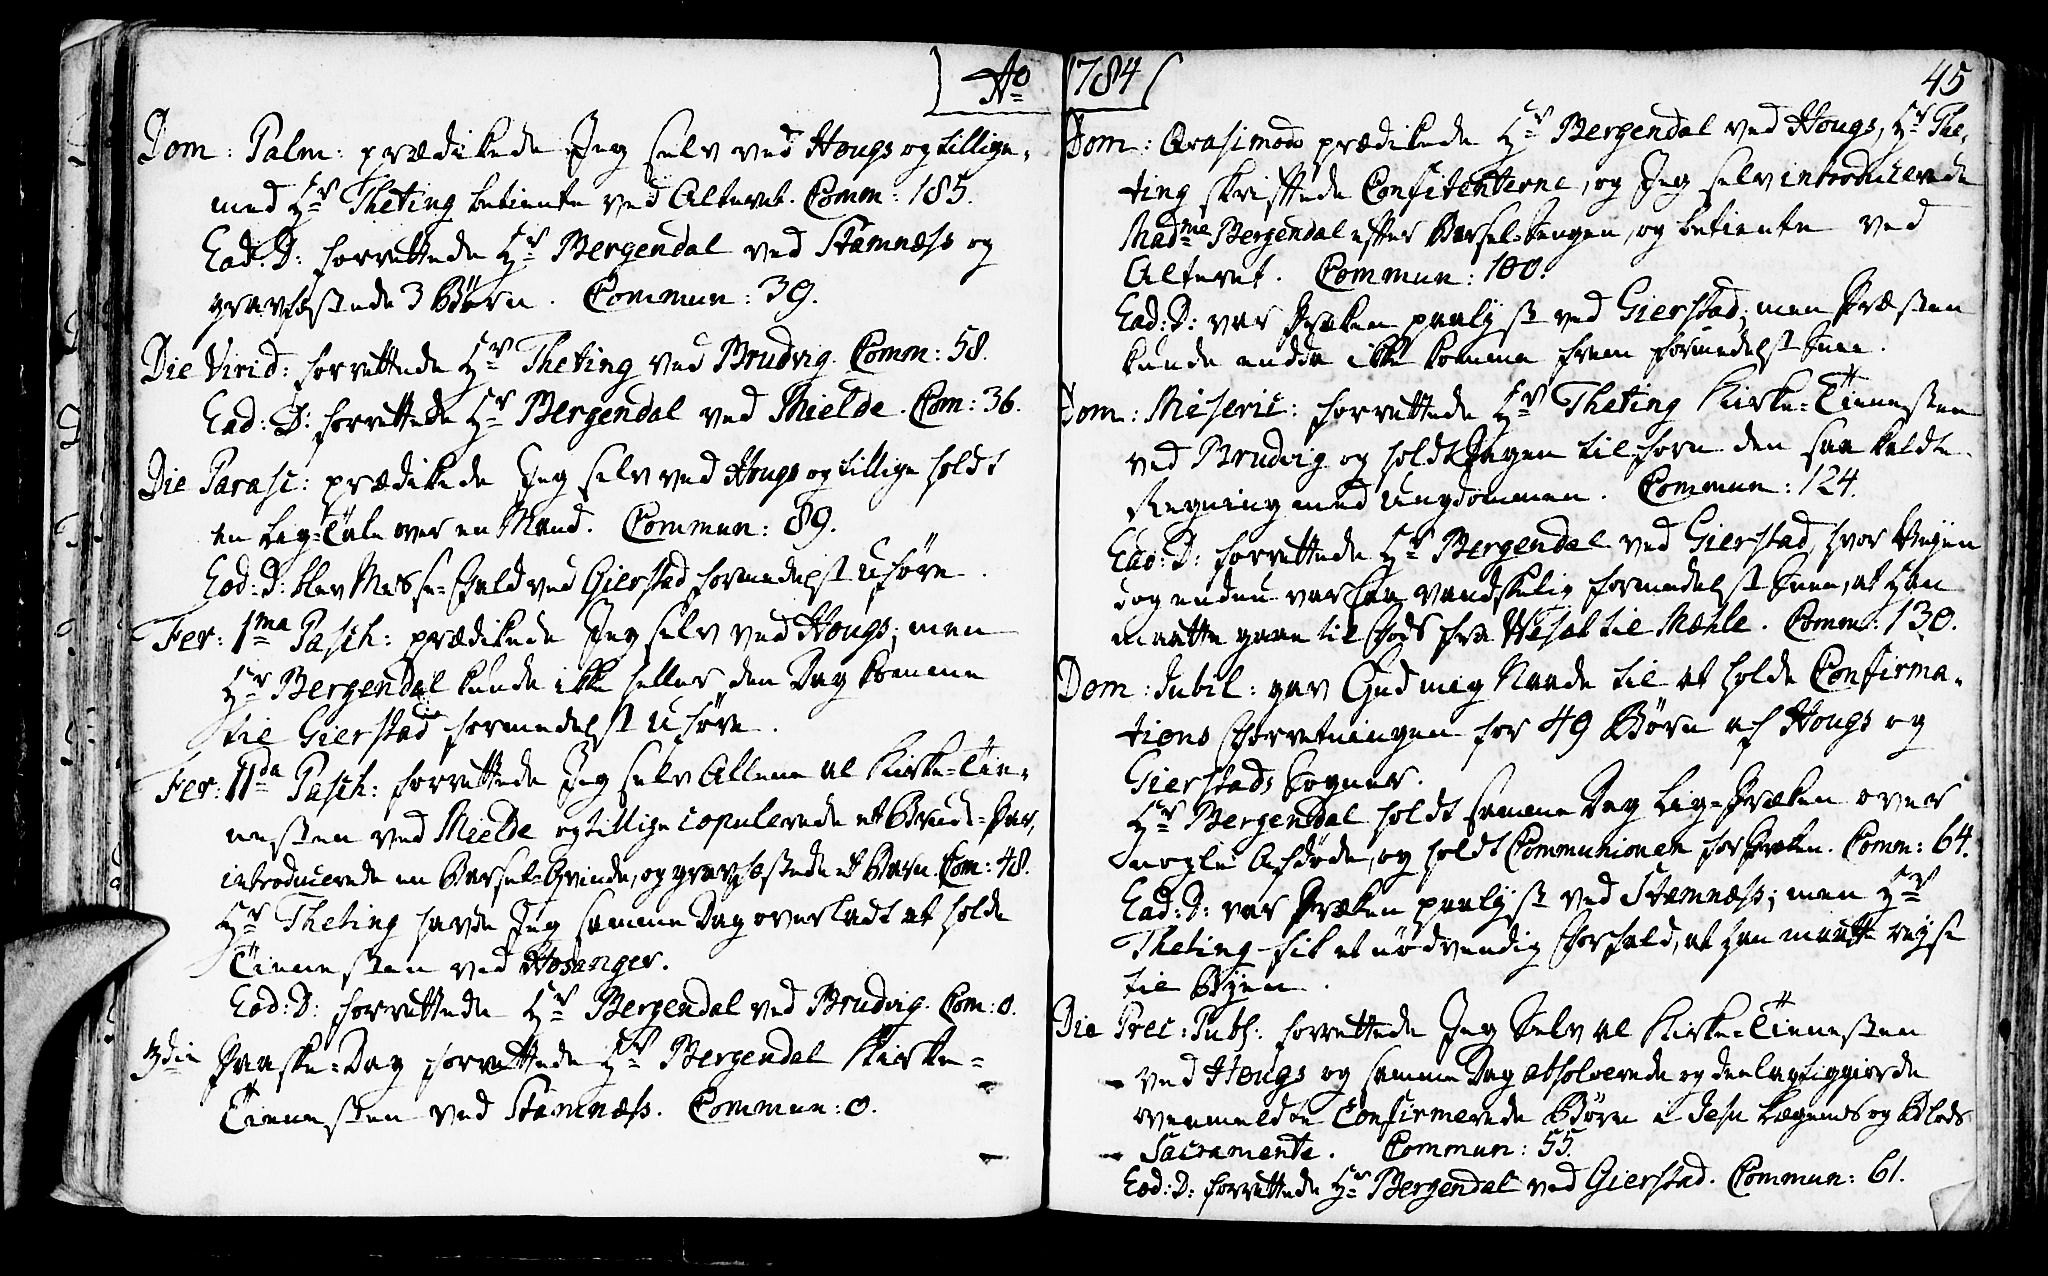 Ao 1784
45
Dom: Palm: prædikede Jeg selv ved Hougs og tillige-
med Hr Theting betiente ved Alteret. Comm: 185.
Ead: D: forrettede Hr Bergendal ved Stamnæss og
gravfæstede 3 Børn. Commun: 39.
Die Virid: forrettede Hr Theting ved Brudvig. Comm: 58.
Ead: D: forrettede Hr Bergendal ved Mielde. Com: 36.
Die Parasc: prædikede Jeg selv ved Hougs og tillige holdt
en Lig-Tale over en Mand. Commun: 89.
Eod: D: blev Messe-Fald ved Gierstad formedelst Uføre.
Fer: 1ma Pasch: prædikede Jeg selv ved Hougs; men
Hr Bergendal kunde ikke heller den Dag komme
til Gierstad formedelst Uføre.
Fer: IIda Pasch: forrettede Jeg selv Allene al Kirke-Tie-
nesten ved Mielde og tillige copulerede et Brude-Par,
introducerede en Barsel-Qvinde, og gravfæstede et Barn. Com: 48.
Hr Theting havde Jeg samme Dag overladt at holde
Tienesten ved Hosanger.
Eod: D: forrettede Hr Bergendal ved Brudvig. Com: 0.
3die Paaske-Dag forrettede Hr Bergendal Kirke-
Tienesten ved Stamnæss. Commun: 0.
Dom: Qvasimod: prædikede Hr Bergendal ved Hougs, Hr The-
ting skriftede Confitenterne, og Jeg selv introducerede
Madme Bergendal efter Barsel-Sengen, og betiente ved
Alteret. Commun: 100.
Ead: D: var Præken paalyst ved Gierstad; men Præsten
kunde endda ikke komme frem formedelst Snee.
Dom: Miseric: forrettede Hr Theting Kirke-Tienesten
ved Brudvig og holdt Dagen tilforn den saa kaldte
Regning med Ungdommen. Commun: 124.
Ead: D: forrettede Hr Bergendal ved Gierstad, hvor Vejen
dog endnu var saa vandskelig formedelst Snee, at Han
maatte gaae til Fods fra til Mæhle. Comm: 130.
Dom: Jubil: gav Gud mig Naade til at holde Confirma-
tions Forretningen for 49 Børn af Hougs og
Gierstads Sogner.
Hr Bergendal holdt samme Dag Lig-Præken over
nogle Afdøde, og holdt Communionen for Præken. Comm: 64.
Ead: D: var Præken paalyst ved Stamnæss; men Hr
Theting fik et nødvendig Forfald, at han maatte rejse
til Byen.
Die Prec: Publ: forrettede Jeg Selv al Kirke-Tienesten
ved Hougs og samme Dag absolverede og deelagtiggiorde
ovenmeldte Confirmerede Børn i Jesu Legems og Blods
Sacramente. Commun: 55.
Eod: D: forrettede Hr Bergendal ved Gierstad. Commun: 61.